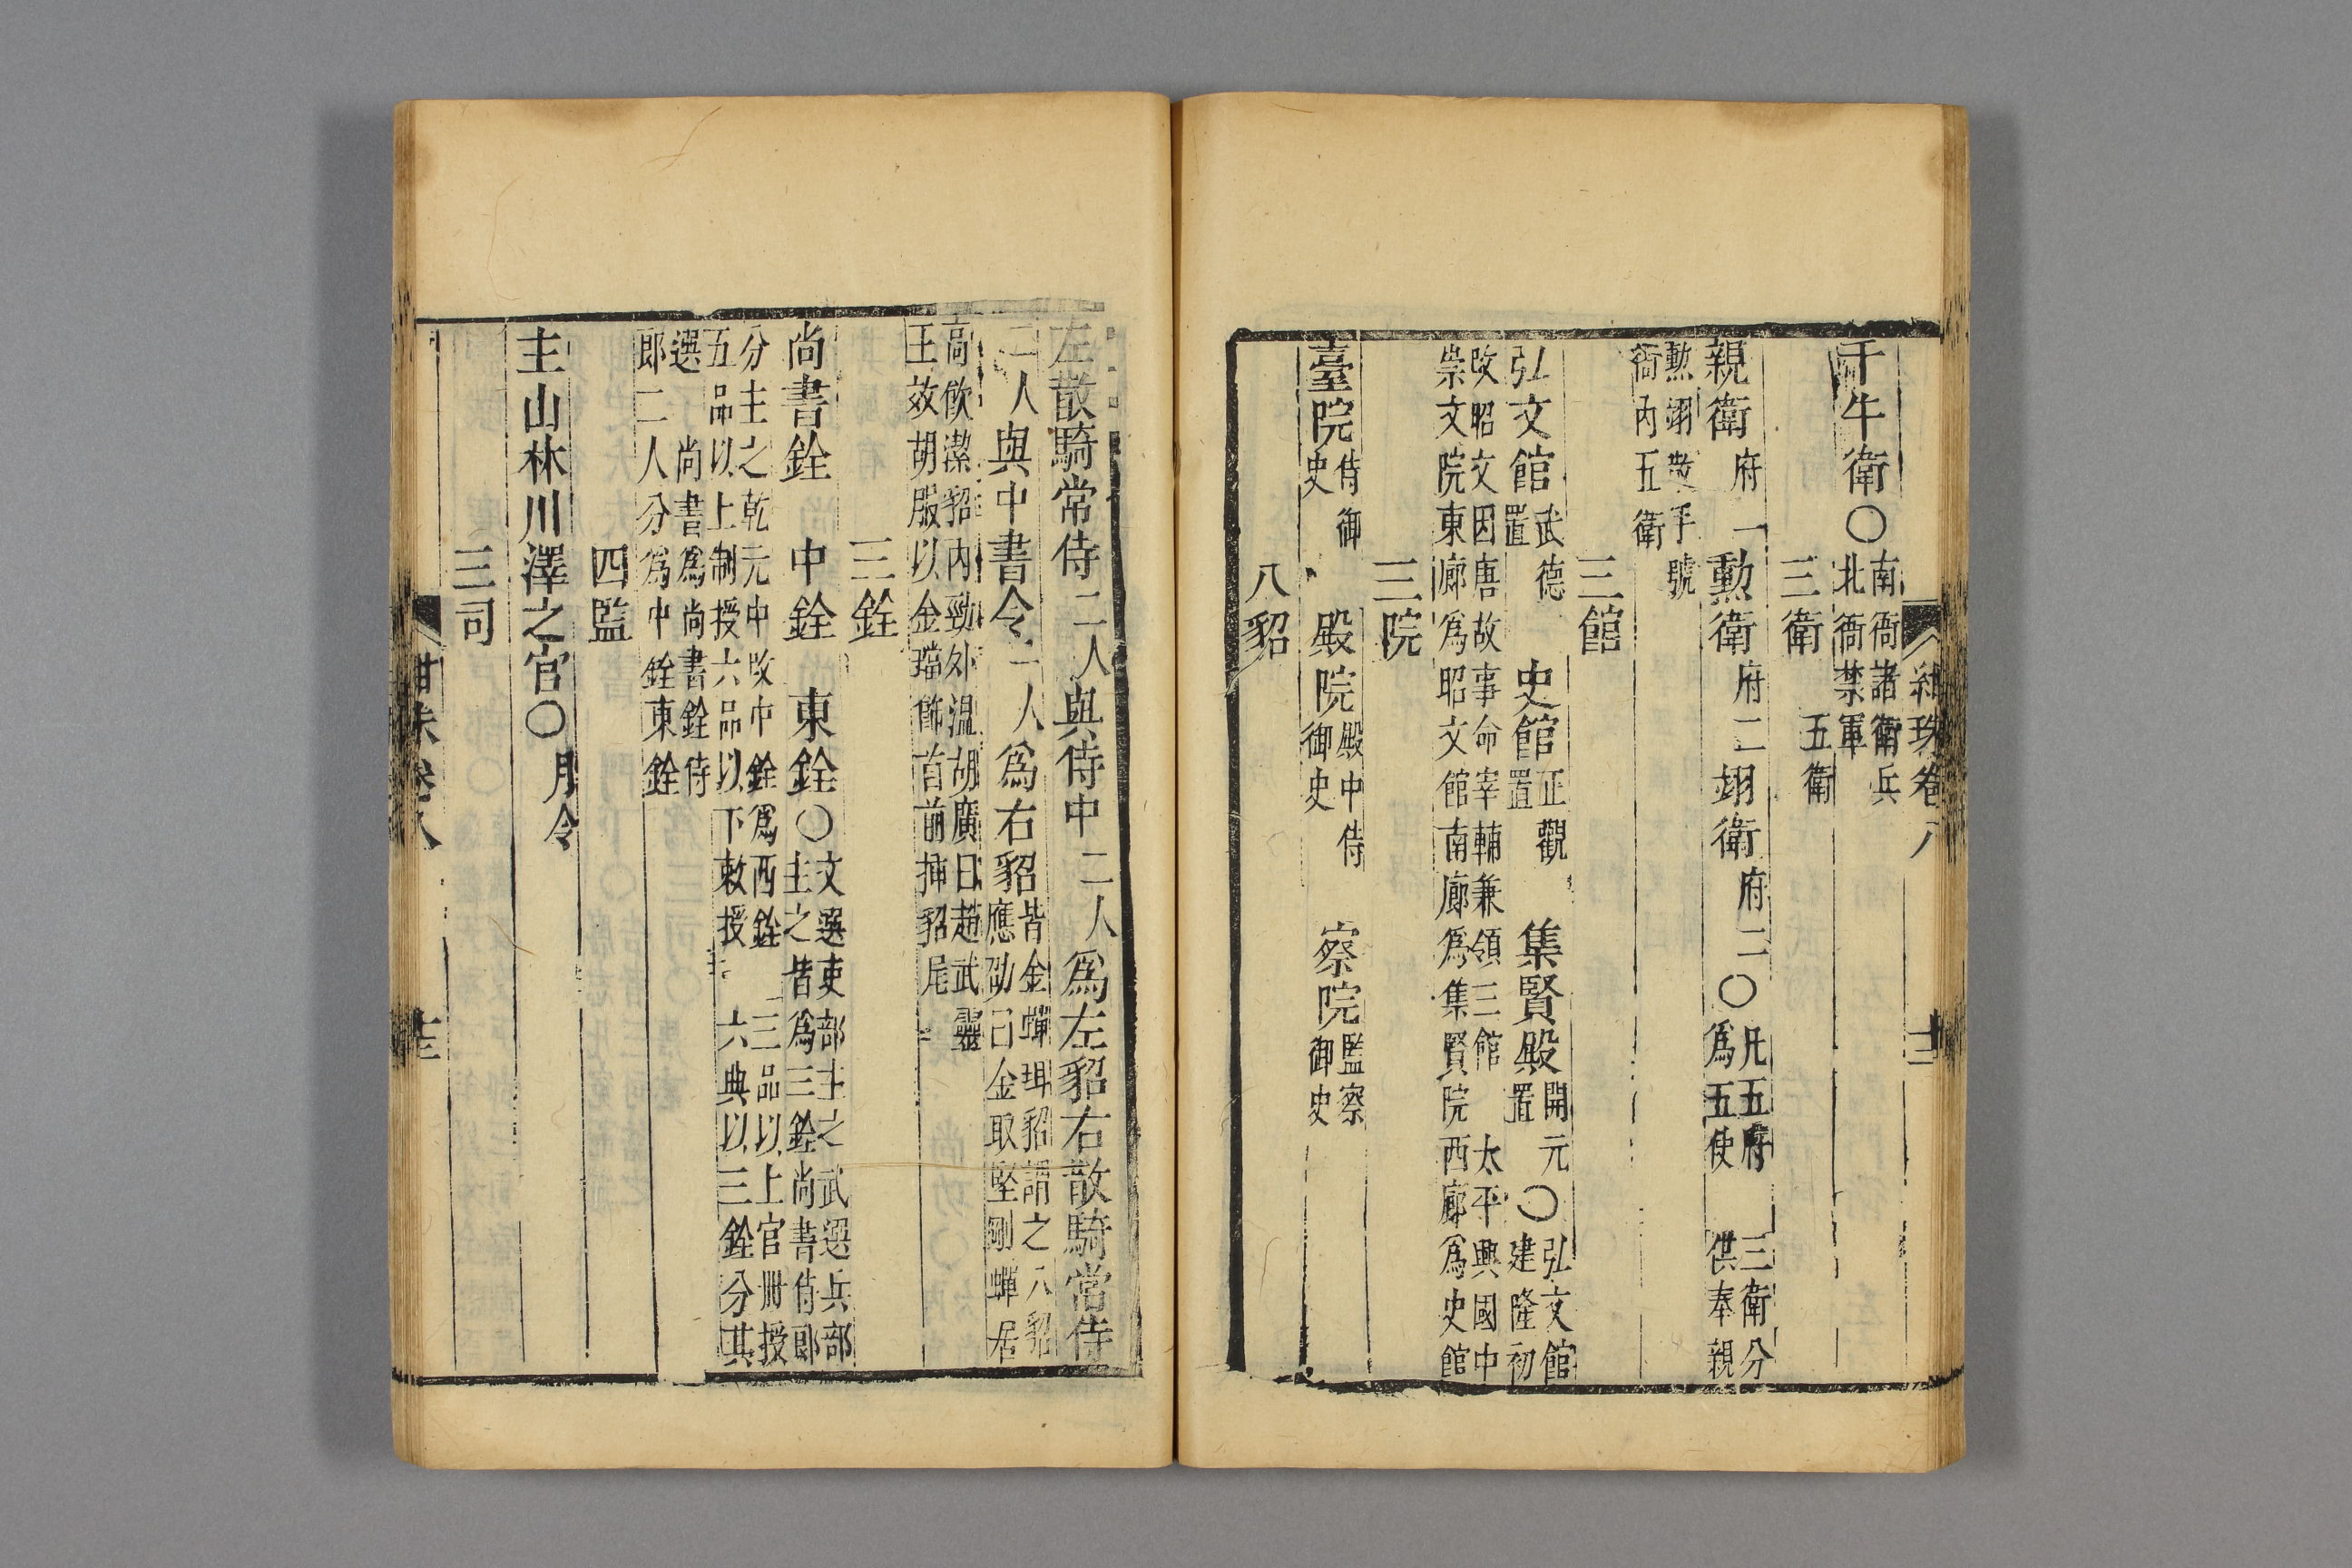 紺珠卷八　十三
千牛衛〇南衙諸衛兵
北衙禁軍
三衛　五衛
親衛府一勲衛府二翊衛府二〇凡五府　三衛分
爲五使　供奉親
勲翊散手號
衙內五衛
三館
弘文館武德
置　史館正觀
置　集賢殿開元
置〇弘文館
建隆初
改昭文因唐故事命宰輔兼領三館　太平興國中
崇文院東廊爲昭文館南廊爲集賢院西廊爲史館
三院
臺院侍御
史　殿院殿中侍
御史　察院監察
御史
八貂
左散騎常侍二人與侍中二人爲左貂右散騎常侍
二人與中書令二人爲右貂皆金蟬珥貂謂之八貂
應劭曰金取堅剛蟬居
高飲潔貂內勁外溫胡廣曰趙武靈
王效胡服以金璫飾首前揷貂尾
三銓
尚書銓　中銓　東銓〇文選吏部主之武選兵部
主之皆爲三銓尚書侍郎
分主之乾元中改中銓爲西銓　三品以上官冊授
五品以上制授六品以下敕授　六典以三銓分其
選　尚書爲尚書銓侍
郎二人分爲中銓東銓
四監
主山林川澤之官〇月令
三司
紺珠卷八　十三